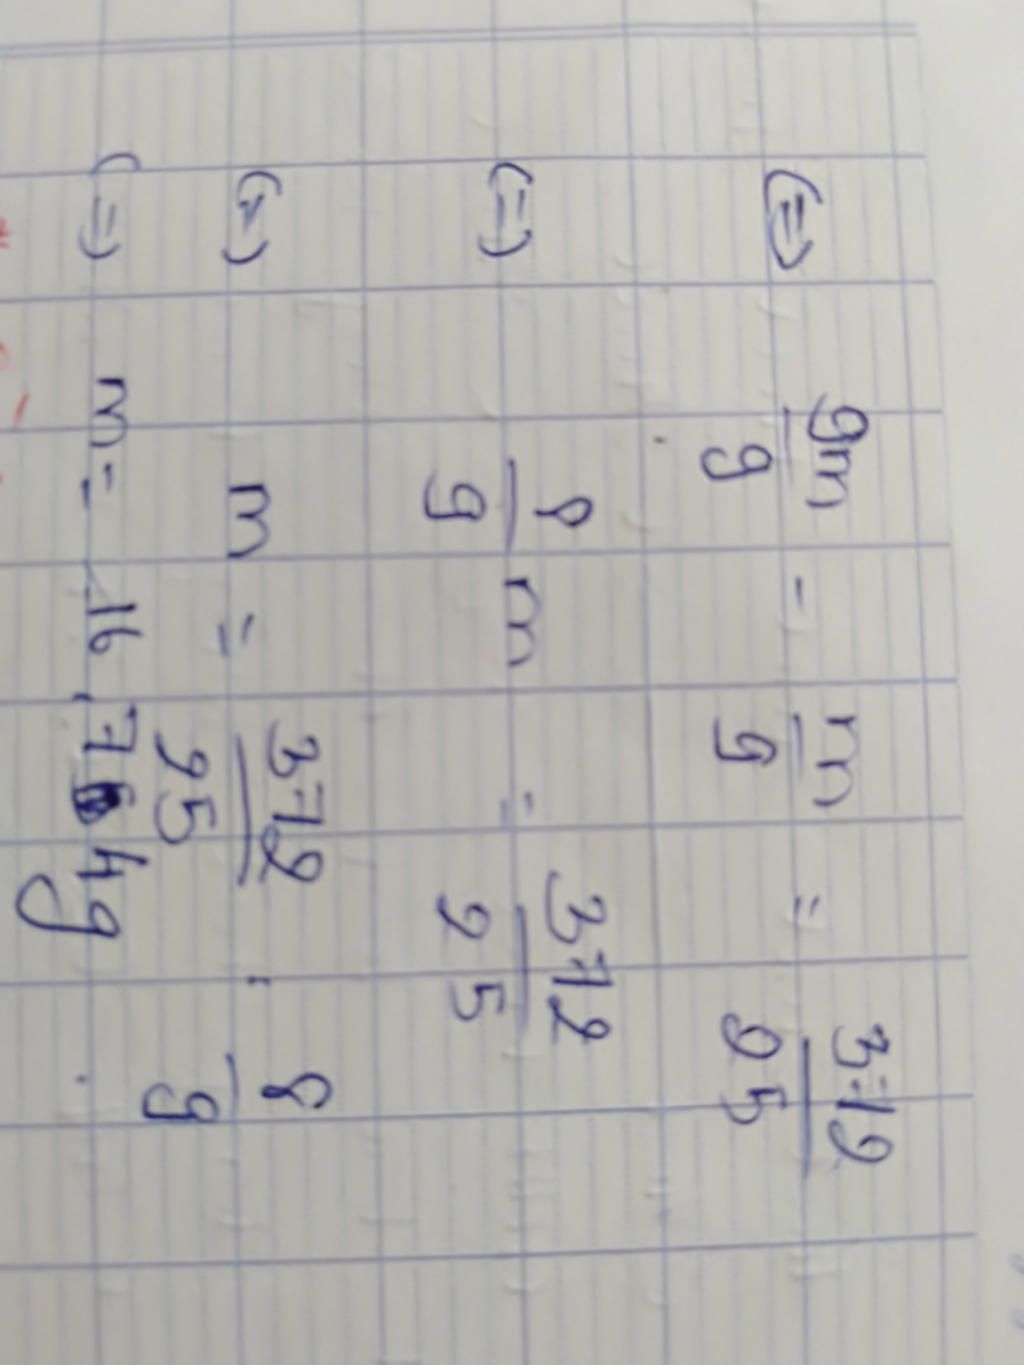 (=) 9m/9 - m/9 = 372/25
(=) 8/9 m = 372/25
(=) m = 372/25 : 8/9
(=) m = 16,74g